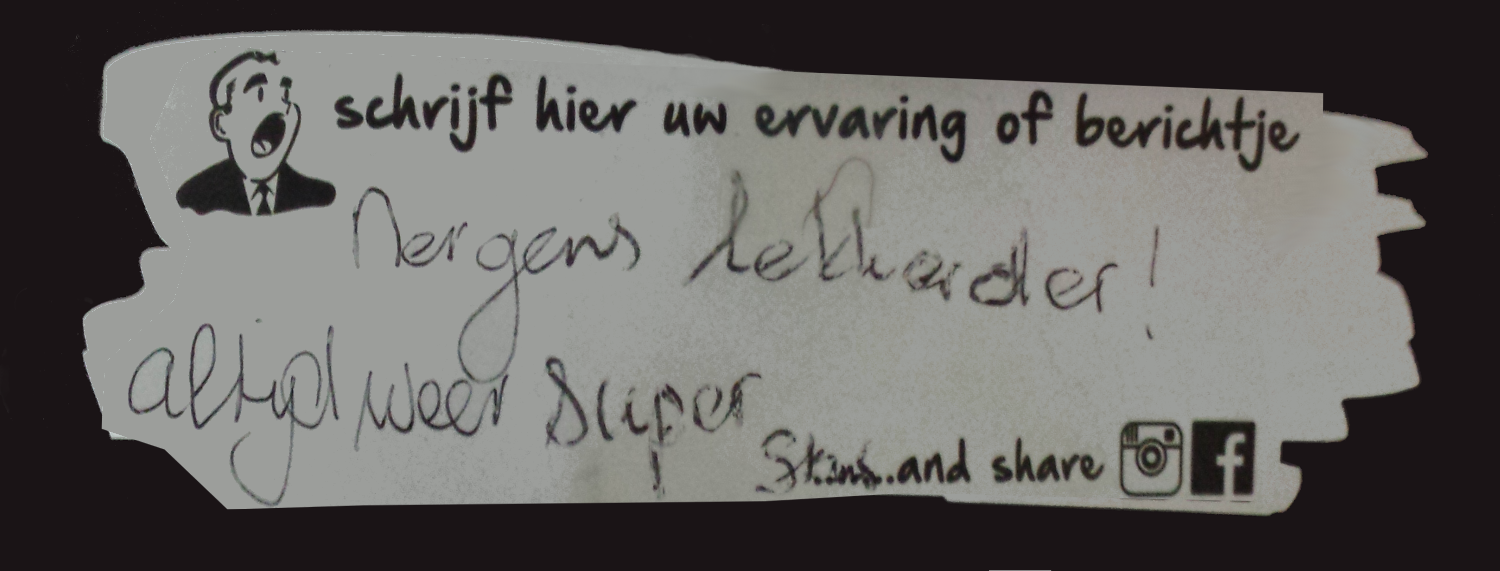 schrijf hier uw ervaring of berichtje
Nergens lekkerder!
altijd weer super
...and share